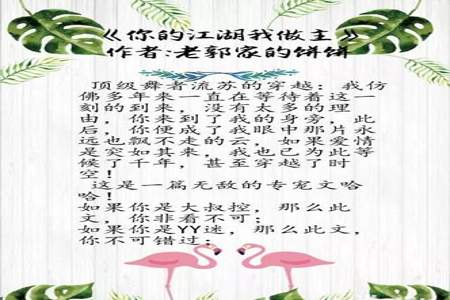 《你的江湖我做主》
作者:老郭家的饼饼
顶级舞者流苏的穿越：我仿
佛多年来一直在等待着这一
刻的到来，没有太多的理
由，你来到了我的身旁，此
后，你便成了我眼中那片永
远也飘不走的云，如果爱情
是突如其来，我也已为此等
候了千年，甚至穿越了时
空！
这是一篇无敌的专宠文哈
哈！
如果你是大叔控，那么此
文，你非看不可；
如果你是YY迷，那么此文，
你不可错过；